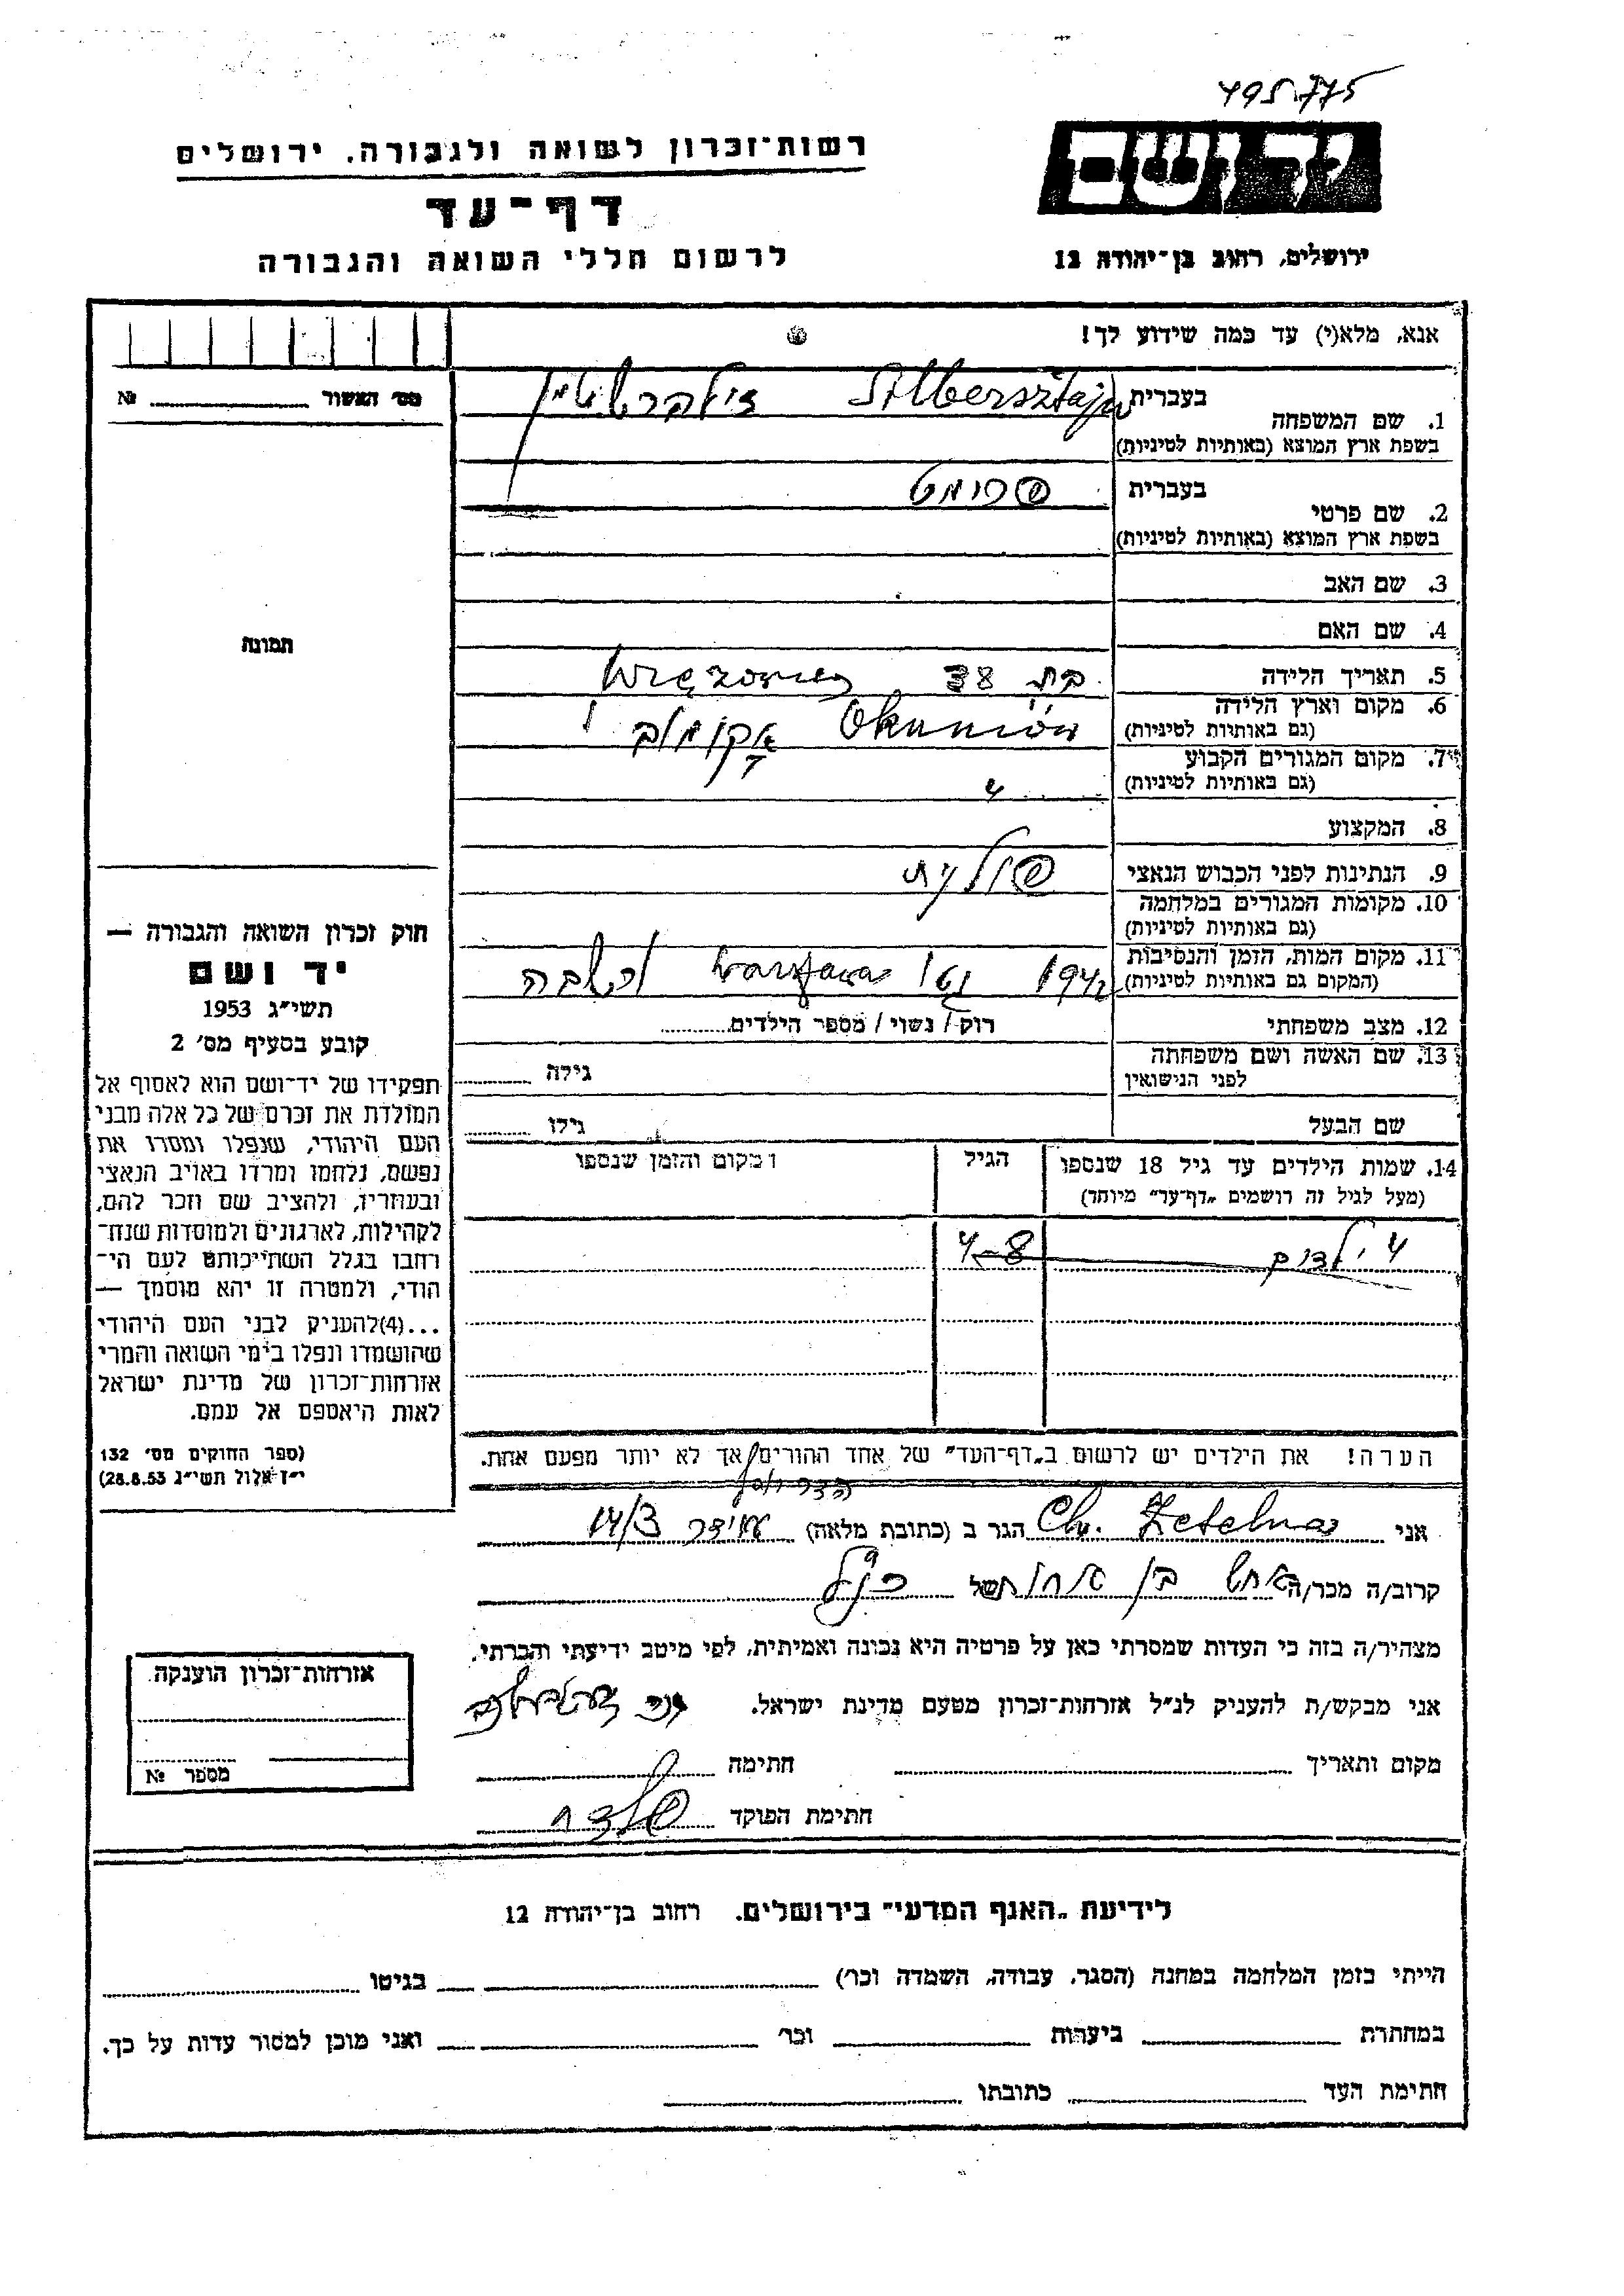 495775
יד ושם
ירושלים, רחוב בן-יהודה 12
רשות-זכרון לשואה ולגבורה, ירושלים
דף-עד
לרשום חללי השואה והגבורה
אנא, מלא(י) עד כמה שידוע לך!
מס' האשור № 
1. שם המשפחה בעברית זילברשטיין Silbersztajn
בשפת ארץ המוצא (באותיות לטיניות)
2. שם פרטי בעברית פרומט
בשפת ארץ המוצא (באותיות לטיניות)
3. שם האב
4. שם האם
תמונה
5. תאריך הלידה בת 38
6. מקום וארץ הלידה Okuniów
(גם באותיות לטיניות)
7. מקום המגורים הקבוע
(גם באותיות לטיניות)
8. המקצוע
9. הנתינות לפני הכבוש הנאצי פולנית
10. מקומות המגורים במלחמה
(גם באותיות לטיניות)
11. מקום המות, הזמן והנסיבות 1942 גטו Warszawa
(המקום גם באותיות לטיניות)
12. מצב משפחתי רוק / נשוי / מספר הילדים
13. שם האשה ושם משפחתה גילה
לפני הנישואין
שם הבעל גילו
14. שמות הילדים עד גיל 18 שנספו הגיל ומקום והזמן שנספו
(מעל לגיל זה רושמים "דף-עד" מיוחד)
4 ילדים 8-4
הערה! את הילדים יש לרשום ב"דף-העד" של אחד ההורים/אך לא יותר מפעם אחת.
חוק זכרון השואה והגבורה —
יד ושם
תשי"ג 1953
קובע בסעיף מס' 2
תפקידו של יד-ושם הוא לאסוף אל
המולדת את זכרם של כל אלה מבני
העם היהודי, שנפלו ומסרו את
נפשם, נלחמו ומרדו באויב הנאצי
ובעוזריו, ולהציב שם וזכר להם,
לקהילות, לארגונים ולמוסדות שנח-
רחבו בגלל השתייכותם לעם הי-
הודי, ולמטרה זו יהא מוסמך —
...(4)להעניק לבני העם היהודי
שהושמדו ונפלו בימי השואה והמרי
אזרחות-זכרון של מדינת ישראל
לאות היאספם אל עמם.
(ספר החוקים מס' 132
י"ז אלול תשי"ג 28.8.53)
אני Ch. Zetelna הגר ב (כתובת מלאה) 14/3
קרוב/ה מכר/ה בן אחות של
מצהיר/ה בזה כי העדות שמסרתי כאן על פרטיה היא נכונה ואמיתית, לפי מיטב ידיעתי והכרתי.
אני מבקש/ת להעניק לנ"ל אזרחות-זכרון מטעם מדינת ישראל.
מקום ותאריך חתימה
חתימת הפוקד
אזרחות-זכרון הוענקה
מספר №
לידיעת "האגף המדעי" בירושלים. רחוב בן-יהודה 12
הייתי בזמן המלחמה במחנה (הסגר, עבודה, השמדה וכו') בגיטו
במחתרת ביערות וכו' ואני מוכן למסור עדות על כך.
חתימת העד כתובתו